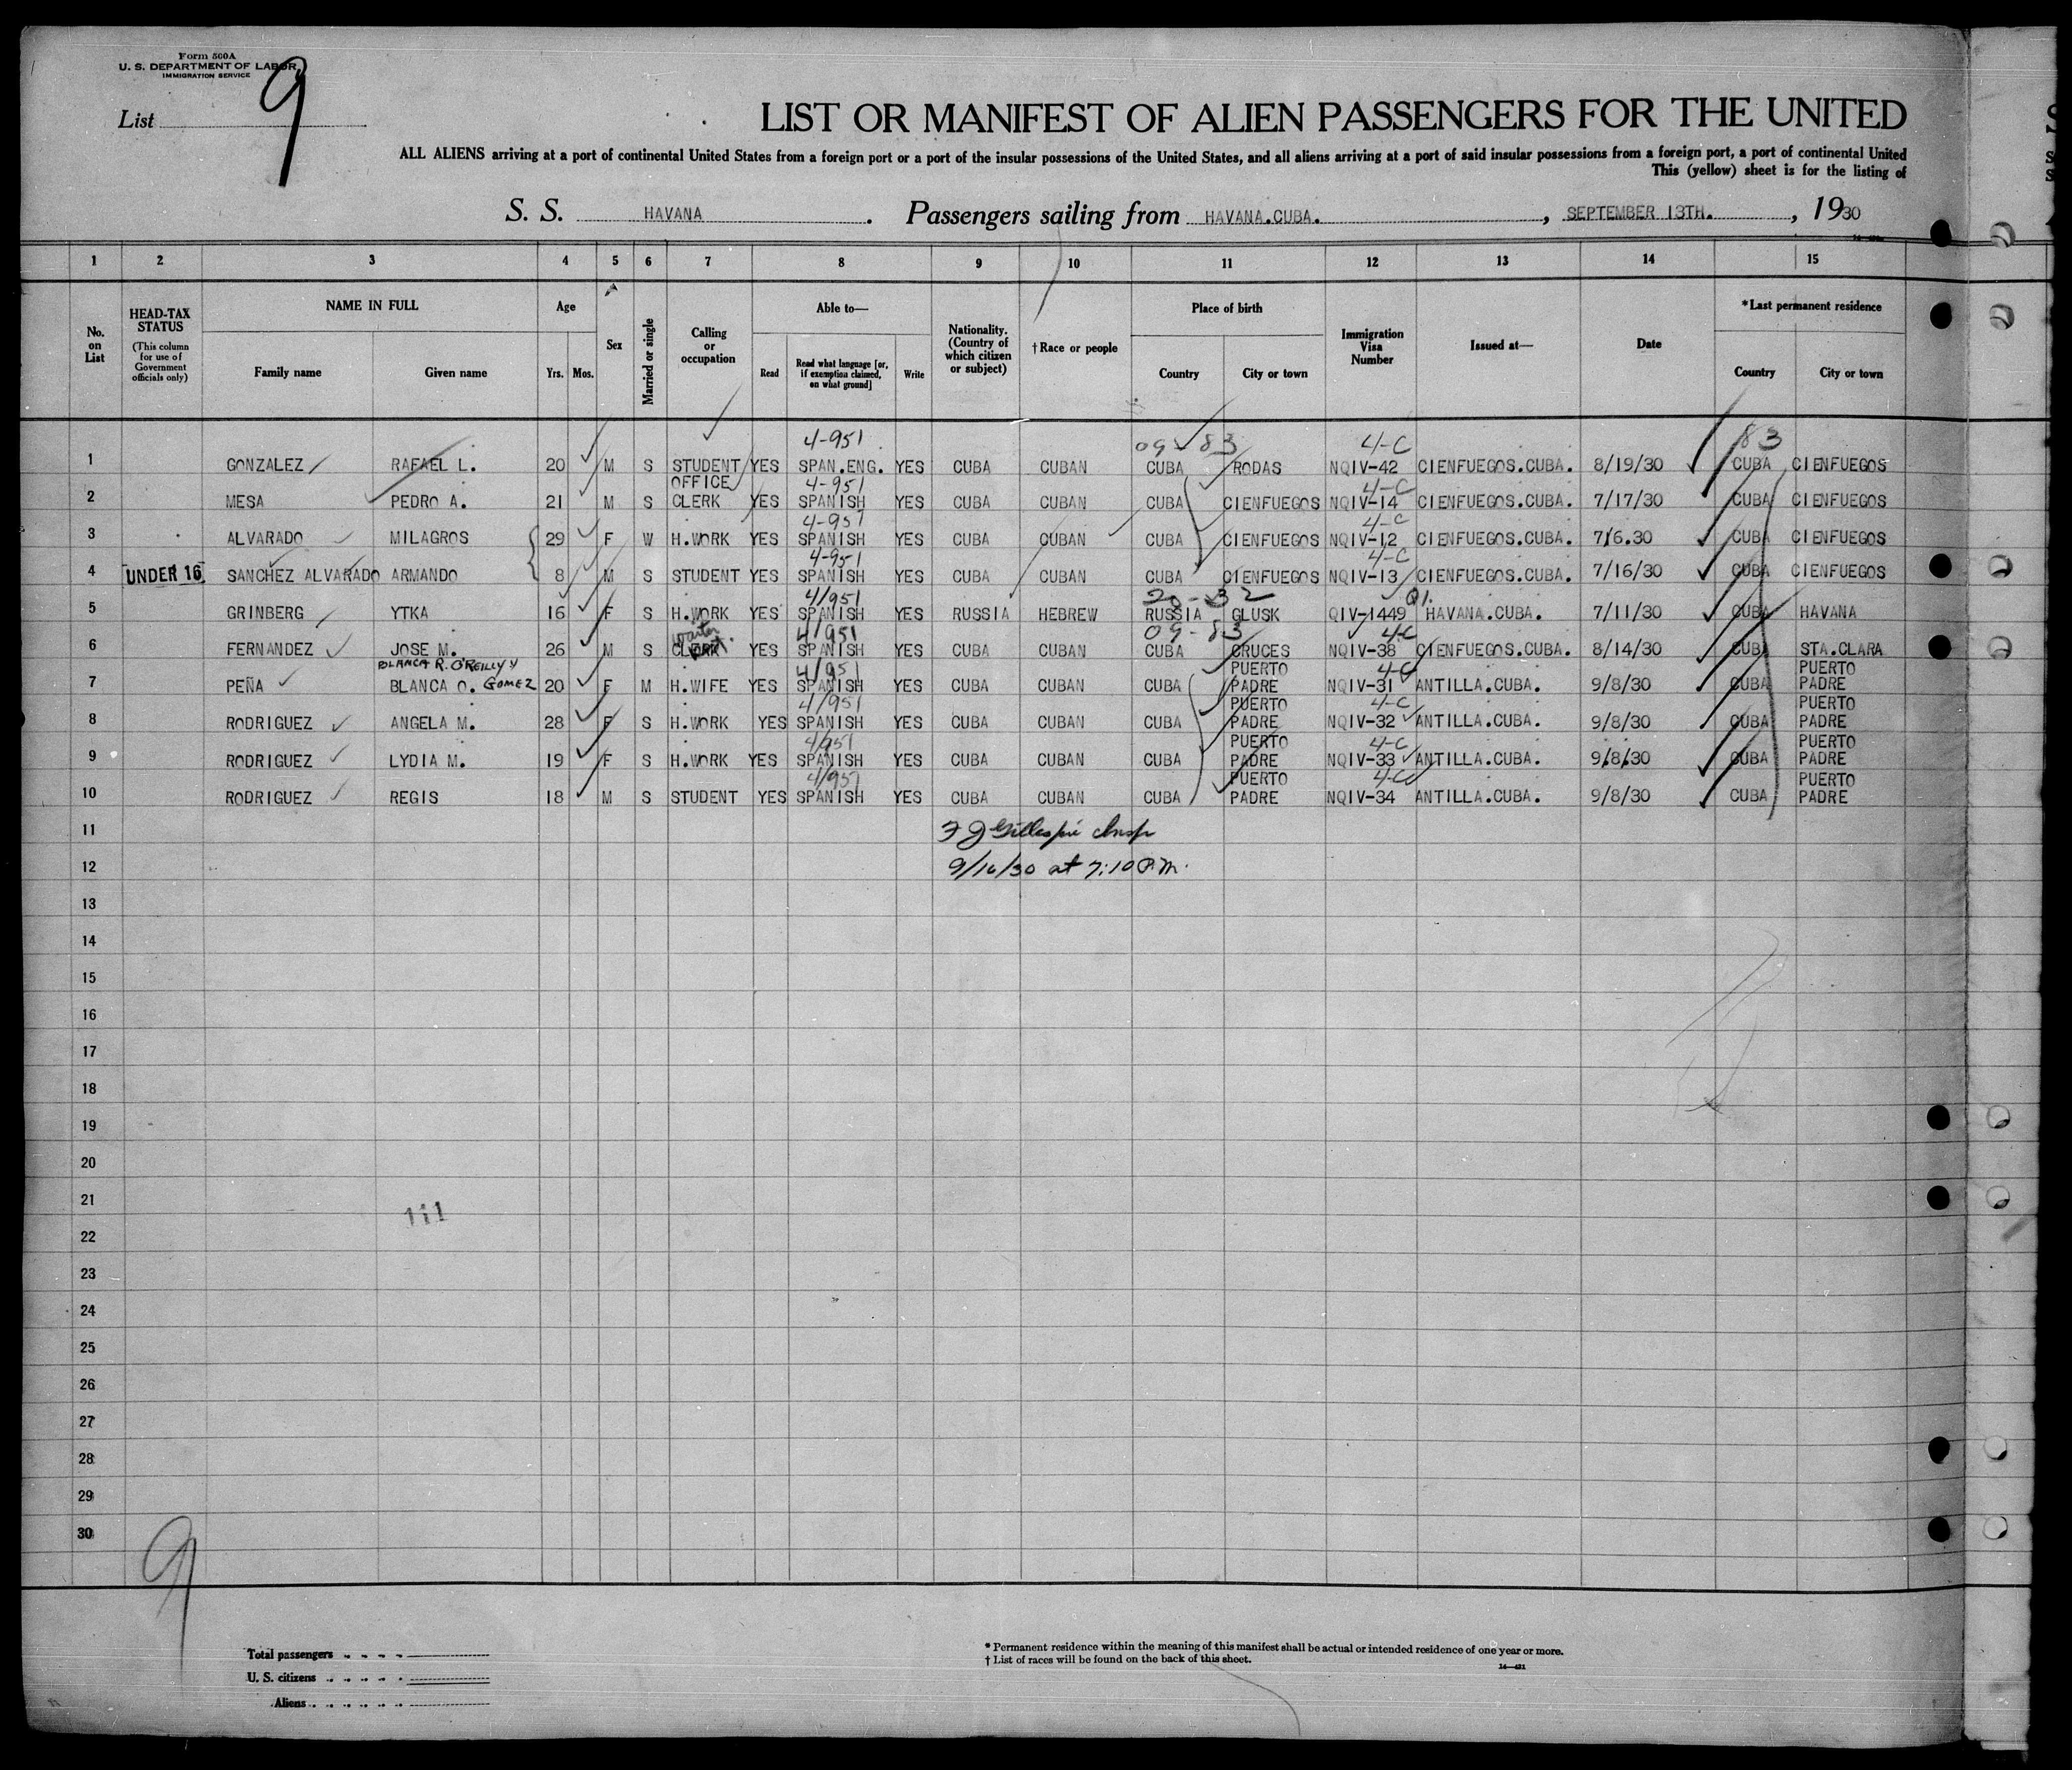 Form 500A
U. S. DEPARTMENT OF LABOR
IMMIGRATION SERVICE
List 9
LIST OR MANIFEST OF ALIEN PASSENGERS FOR THE UNITED
ALL ALIENS arriving at a port of continental United States from a foreign port or a port of the insular possessions of the United States, and all aliens arriving at a port of said insular possessions from a foreign port, a port of continental United
This (yellow) sheet is for the listing of
S. S. HAVANA. Passengers sailing from HAVANA.CUBA., SEPTEMBER 13TH., 1930
1 2 3 4 5 6 7 8 9 10 11 12 13 14 15
No. on List
HEAD-TAX STATUS (This column for use of Government officials only)
NAME IN FULL
Family name Given name
Age
Yrs. Mos.
Sex
Married or single
Calling or occupation
Able to—
Read Read what language [or, if exemption claimed, on what ground] Write
Nationality. (Country of which citizen or subject)
†Race or people
Place of birth
Country City or town
Immigration Visa Number
Issued at—
Date
*Last permanent residence
Country City or town
4-951 09-83 4-C 83
1 GONZALEZ RAFAEL L. 20 M S STUDENT YES SPAN.ENG. YES CUBA CUBAN CUBA RODAS NQIV-42 CIENFUEGOS.CUBA. 8/19/30 CUBA CIENFUEGOS
OFFICE 4-951 4-C
2 MESA PEDRO A. 21 M S CLERK YES SPANISH YES CUBA CUBAN CUBA CIENFUEGOS NQIV-14 CIENFUEGOS.CUBA. 7/17/30 CUBA CIENFUEGOS
4-951 4-C
3 ALVARADO MILAGROS 29 F W H.WORK YES SPANISH YES CUBA CUBAN CUBA CIENFUEGOS NQIV-12 CIENFUEGOS.CUBA. 7/6.30 CUBA CIENFUEGOS
4-951 4-C
4 UNDER 16 SANCHEZ ALVARADO ARMANDO 8 M S STUDENT YES SPANISH YES CUBA CUBAN CUBA CIENFUEGOS NQIV-13 CIENFUEGOS.CUBA. 7/16/30 CUBA CIENFUEGOS
4/951 20-32 Q1.
5 GRINBERG YTKA 16 F S H.WORK YES SPANISH YES RUSSIA HEBREW RUSSIA GLUSK QIV-1449 HAVANA.CUBA. 7/11/30 CUBA HAVANA
waiter 4/951 09-83 4-C
6 FERNANDEZ JOSE M. 26 M S CLERK YES SPANISH YES CUBA CUBAN CUBA CRUCES NQIV-38 CIENFUEGOS.CUBA. 8/14/30 CUBA STA.CLARA
BLANCA R. O'REILLY Y GOMEZ 4/951 PUERTO 4-C PUERTO
7 PEÑA BLANCA O. 20 F M H.WIFE YES SPANISH YES CUBA CUBAN CUBA PADRE NQIV-31 ANTILLA.CUBA. 9/8/30 CUBA PADRE
4/951 PUERTO 4-C PUERTO
8 RODRIGUEZ ANGELA M. 28 F S H.WORK YES SPANISH YES CUBA CUBAN CUBA PADRE NQIV-32 ANTILLA.CUBA. 9/8/30 CUBA PADRE
4/951 PUERTO 4-C PUERTO
9 RODRIGUEZ LYDIA M. 19 F S H.WORK YES SPANISH YES CUBA CUBAN CUBA PADRE NQIV-33 ANTILLA.CUBA. 9/8/30 CUBA PADRE
4/951 PUERTO 4-C PUERTO
10 RODRIGUEZ REGIS 18 M S STUDENT YES SPANISH YES CUBA CUBAN CUBA PADRE NQIV-34 ANTILLA.CUBA. 9/8/30 CUBA PADRE
11 F J Gillespie Insp
12 9/16/30 at 7:10 P.M.
13
14
15
16
17
18
19
20
21
22
23
24
25
26
27
28
29
30
9
Total passengers
U. S. citizens
Aliens
* Permanent residence within the meaning of this manifest shall be actual or intended residence of one year or more.
† List of races will be found on the back of this sheet.
14—421